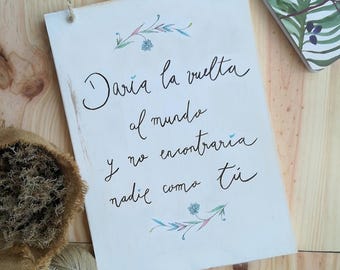 Daría la vuelta
al mundo
y no encontraría
nadie como tú